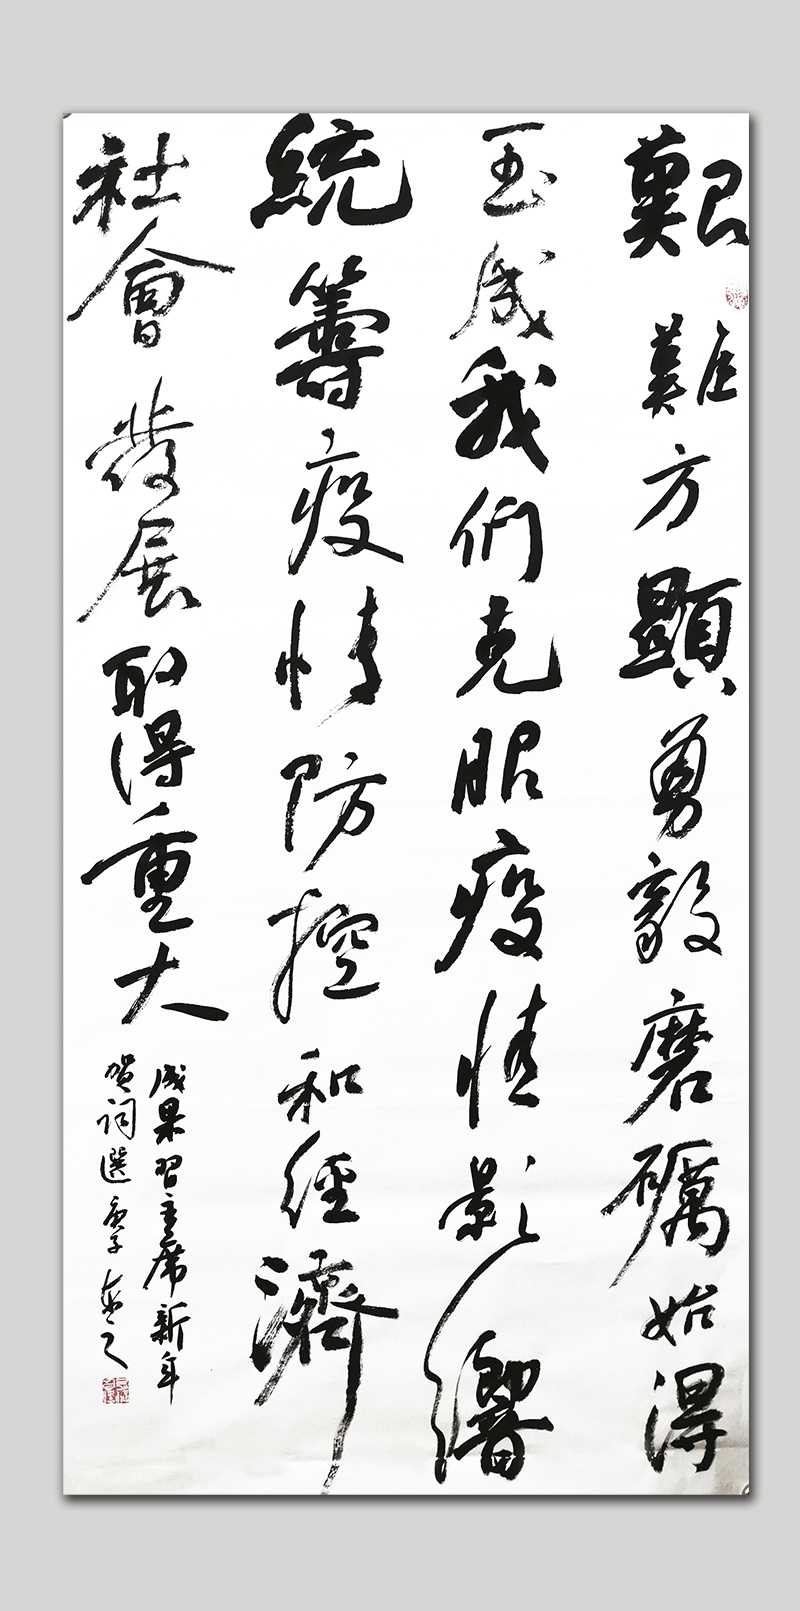 艱難方顯勇毅磨礪始得
玉成我們克服疫情影響
統籌疫情防控和經濟
社會發展取得重大
成果習主席新年
贺词選庚子